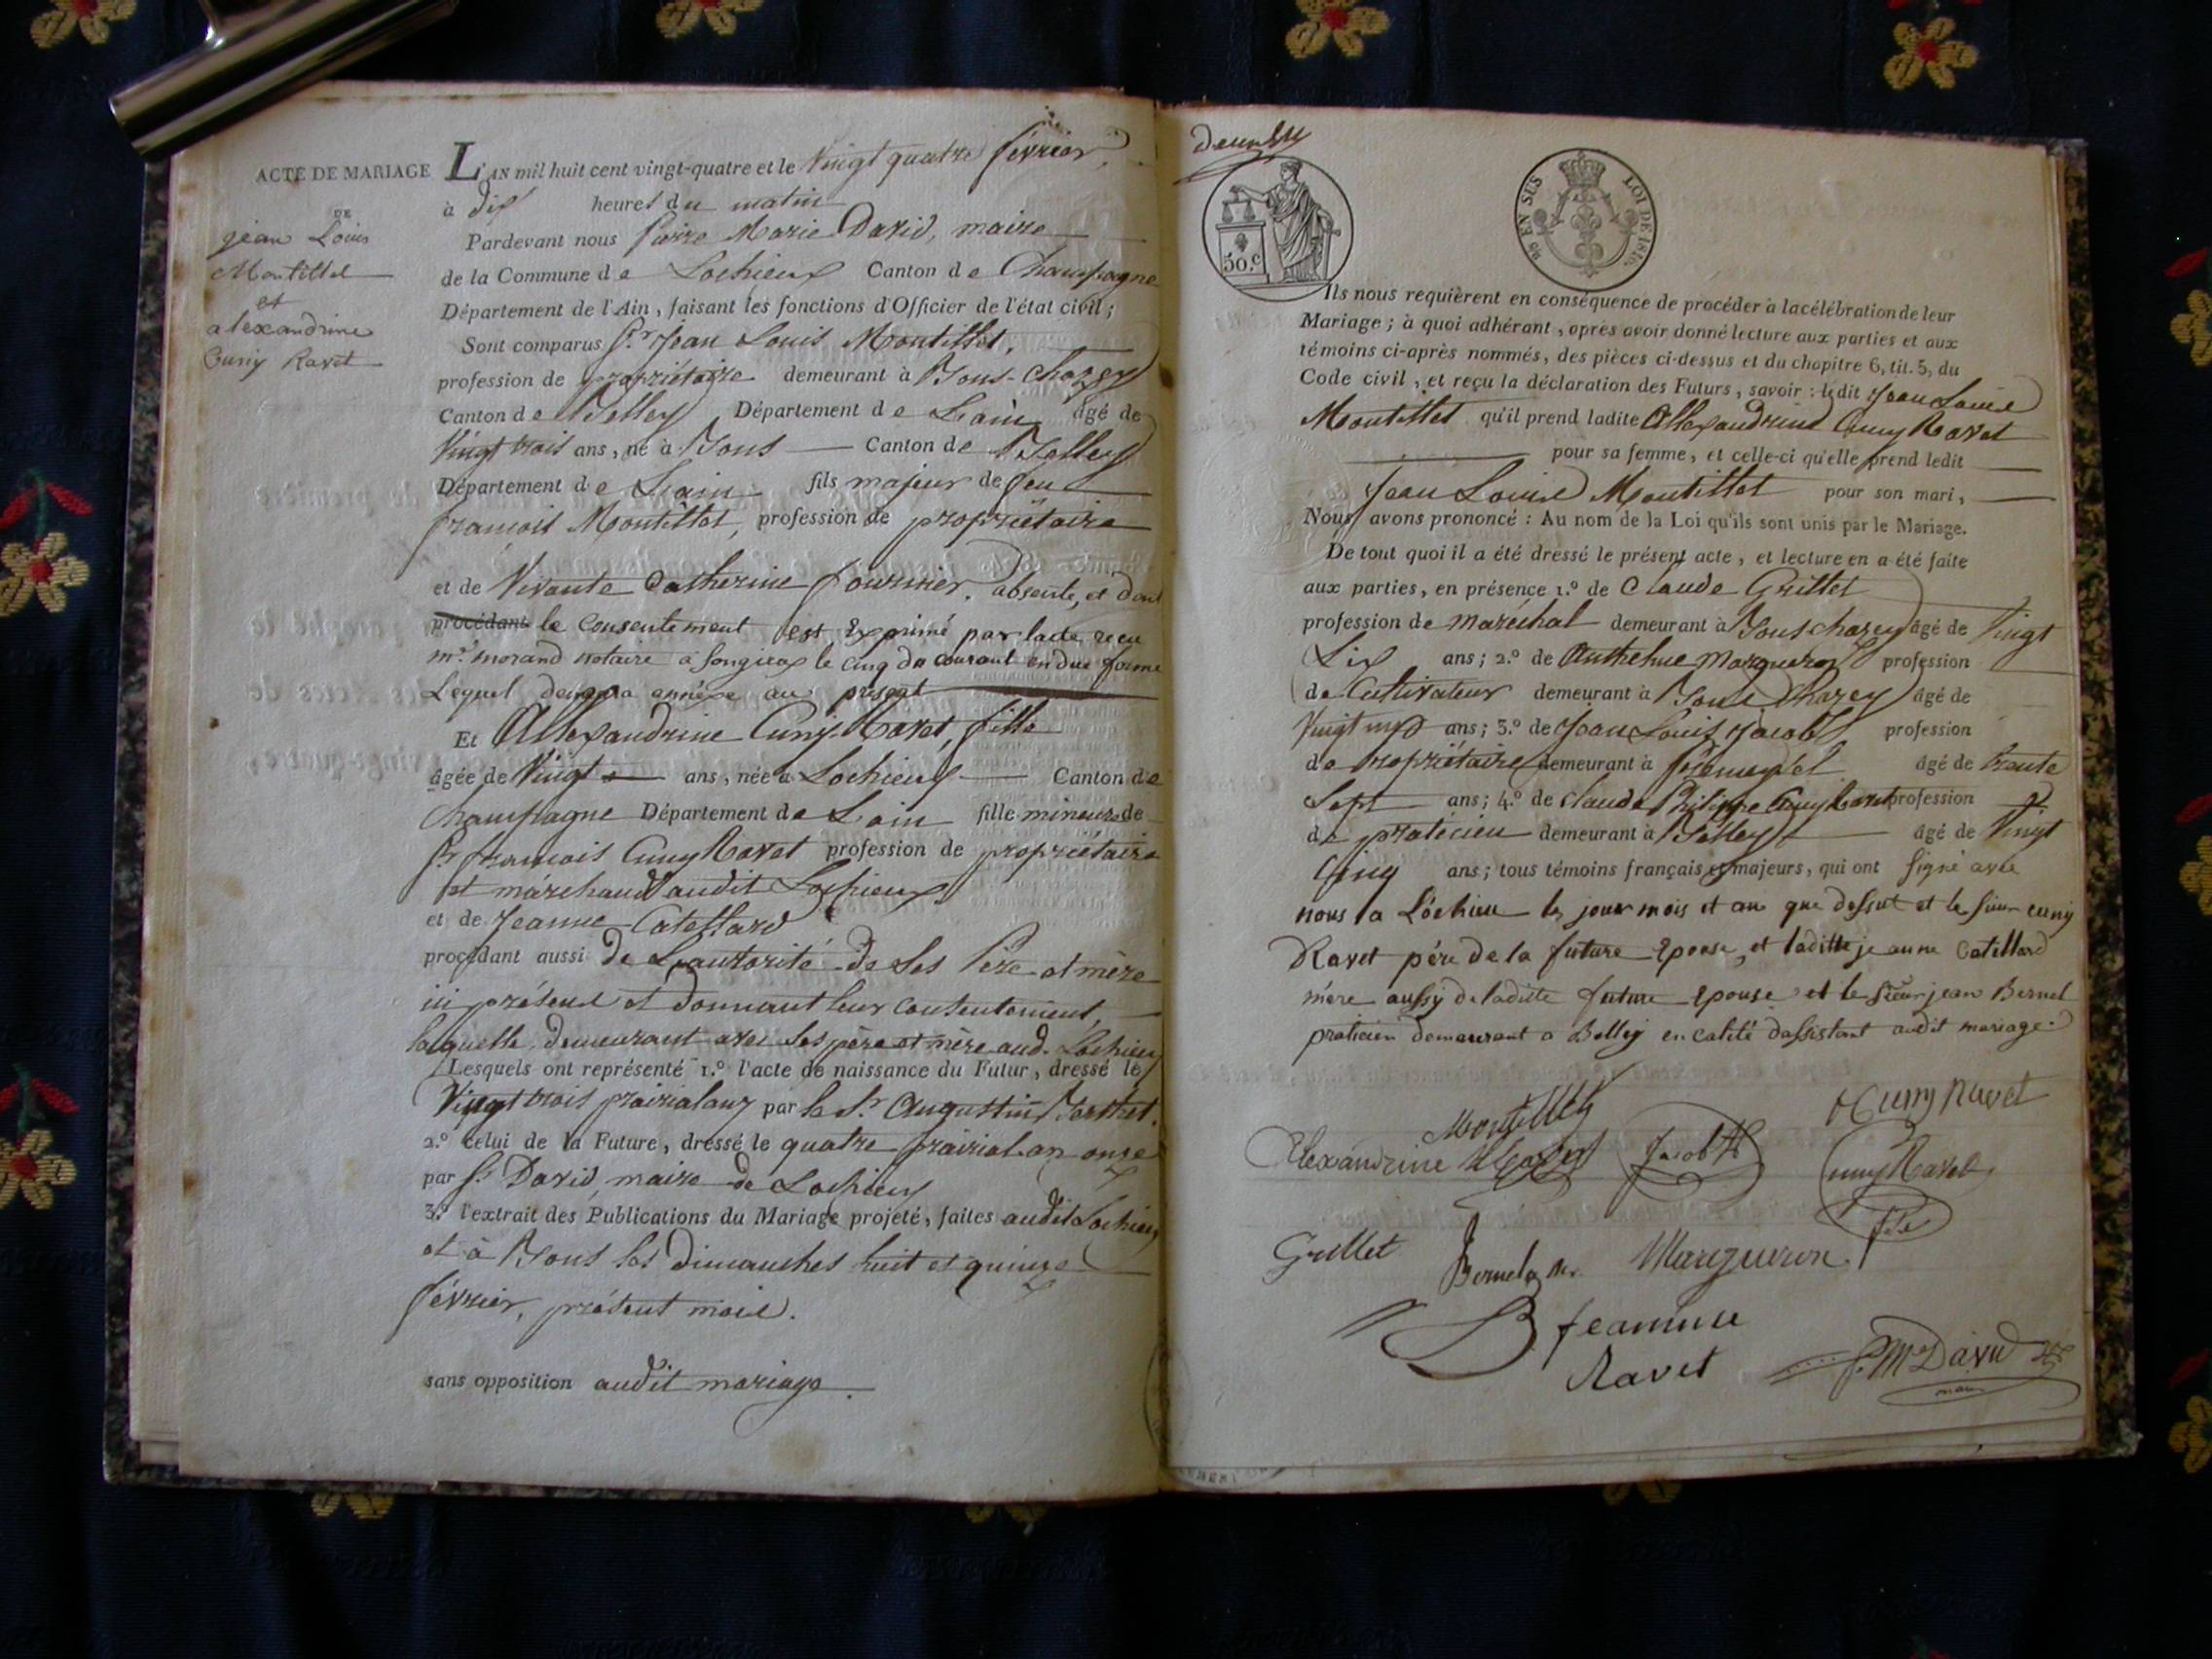 ACTE DE MARIAGE
DE
jean Louis
Montillet
et
alexandrine
Cuny Ravet
L'AN mil huit cent vingt-quatre et le Vingt quatre février,
à dix heures du matin
Pardevant nous Pierre Marie David, maire
de la Commune de Lochieux Canton de Champagne
Département de l'Ain, faisant les fonctions d'Officier de l'état civil;
Sont comparus Sr. Jean Louis Montillet,
profession de propriétaire demeurant à Yons-Chazey
Canton de Belley Département de L'ain âgé de
Vingt trois ans, né à Yons Canton de Belley
Département de L'ain fils majeur de feu
françois Montillet, profession de propriétaire
et de Vivante Catherine fournier, absente, et dont
procédant le Consentement est Exprimé par lacte recu
me. morand notaire a Songieux le cinq du courant en due forme
Lequel annexe au présent
Et Allexandrine Cuny-Ravet, fille
âgée de Vingt ans, née à Lochieux Canton de
Champagne Département de L'ain fille mineure de
Sr. françois Cuny Ravet profession de propriétaire
et marchand audit Lochieux
et de Jeanne Catellard
procédant aussi de L'autorité de Ses Père et mère
ici présens et donnant leur Consentement,
laquelle demeurant avec Ses père et mère aud. Lochieux
Lesquels ont représenté 1.º l'acte de naissance du Futur, dressé le
Vingt trois prairial an 9 par le Sr. Augustin Berthet.
2.º celui de la Future, dressé le quatre prairial an onze
par Sr. David, maire de Lochieux
3.º l'extrait des Publications du Mariage projeté, faites audit Lochieux
et à Yons les Dimanches huit et quinze
février, présent mois.
sans opposition audit mariage.
50.c
EN SUS LOI DE 1816.
Ils nous requièrent en conséquence de procéder à la célébration de leur
Mariage; à quoi adhérant, après avoir donné lecture aux parties et aux
témoins ci-après nommés, des pièces ci-dessus et du chapitre 6, tit. 5, du
Code civil, et reçu la déclaration des Futurs, savoir: ledit Jean Louis
Montillet qu'il prend ladite Allexandrine Cuny Ravet
pour sa femme, et celle-ci qu'elle prend ledit
Jean Louis Montillet pour son mari,
Nous avons prononcé: Au nom de la Loi qu'ils sont unis par le Mariage.
De tout quoi il a été dressé le présent acte, et lecture en a été faite
aux parties, en présence 1.º de Claude Grillet
profession de maréchal demeurant à Yons chazey âgé de Vingt
Six ans; 2.º de Anthelme Margueron profession
de Cultivateur demeurant à Yons Chazey âgé de
Vingt un ans; 3.º de Jean Louis Jacob profession
de propriétaire demeurant à Prémeyzel âgé de trente
Sept ans; 4.º de Claude Philippe Cuny Ravet profession
de praticien demeurant à Belley âgé de Vingt
Cinq ans; tous témoins français et majeurs, qui ont Signé avec
nous a Lochieu les jour mois et an que dessut et le sieur cuny
Ravet père de la future Epouse, et laditte jeanne Catellard
mère aussy de laditte future Epouse et le sieur jean Bernel
praticien demeurant a Belley en calité dassistant audit mariage.
Montillet
Cuny Ravet
Alexandrine Ravet
Jacob
Cuny Ravet
Grillet
Margueron
Jeannne
Ravet
P. M David
maire